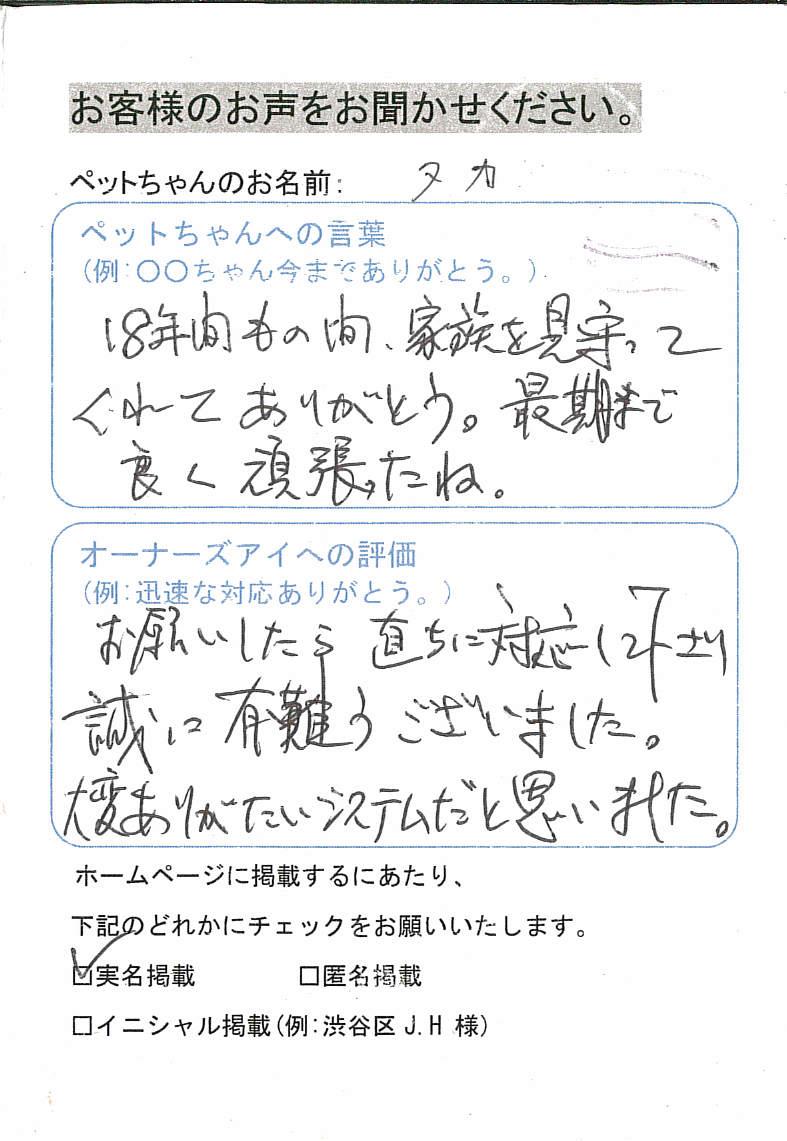 お客様のお声をお聞かせください。
ペットちゃんのお名前: タカ
ペットちゃんへの言葉
(例:〇〇ちゃん今までありがとう。)
18年間もの間、家族を見守って
くれてありがとう。最期まで
良く頑張ったね。
オーナーズアイへの評価
(例:迅速な対応ありがとう。)
お願いしたら直ちに対応して下さり
誠に有難うございました。
大変ありがたいシステムだと思いました。
ホームページに掲載するにあたり、
下記のどれかにチェックをお願いいたします。
☑実名掲載 □匿名掲載
□イニシャル掲載(例:渋谷区J.H 様)